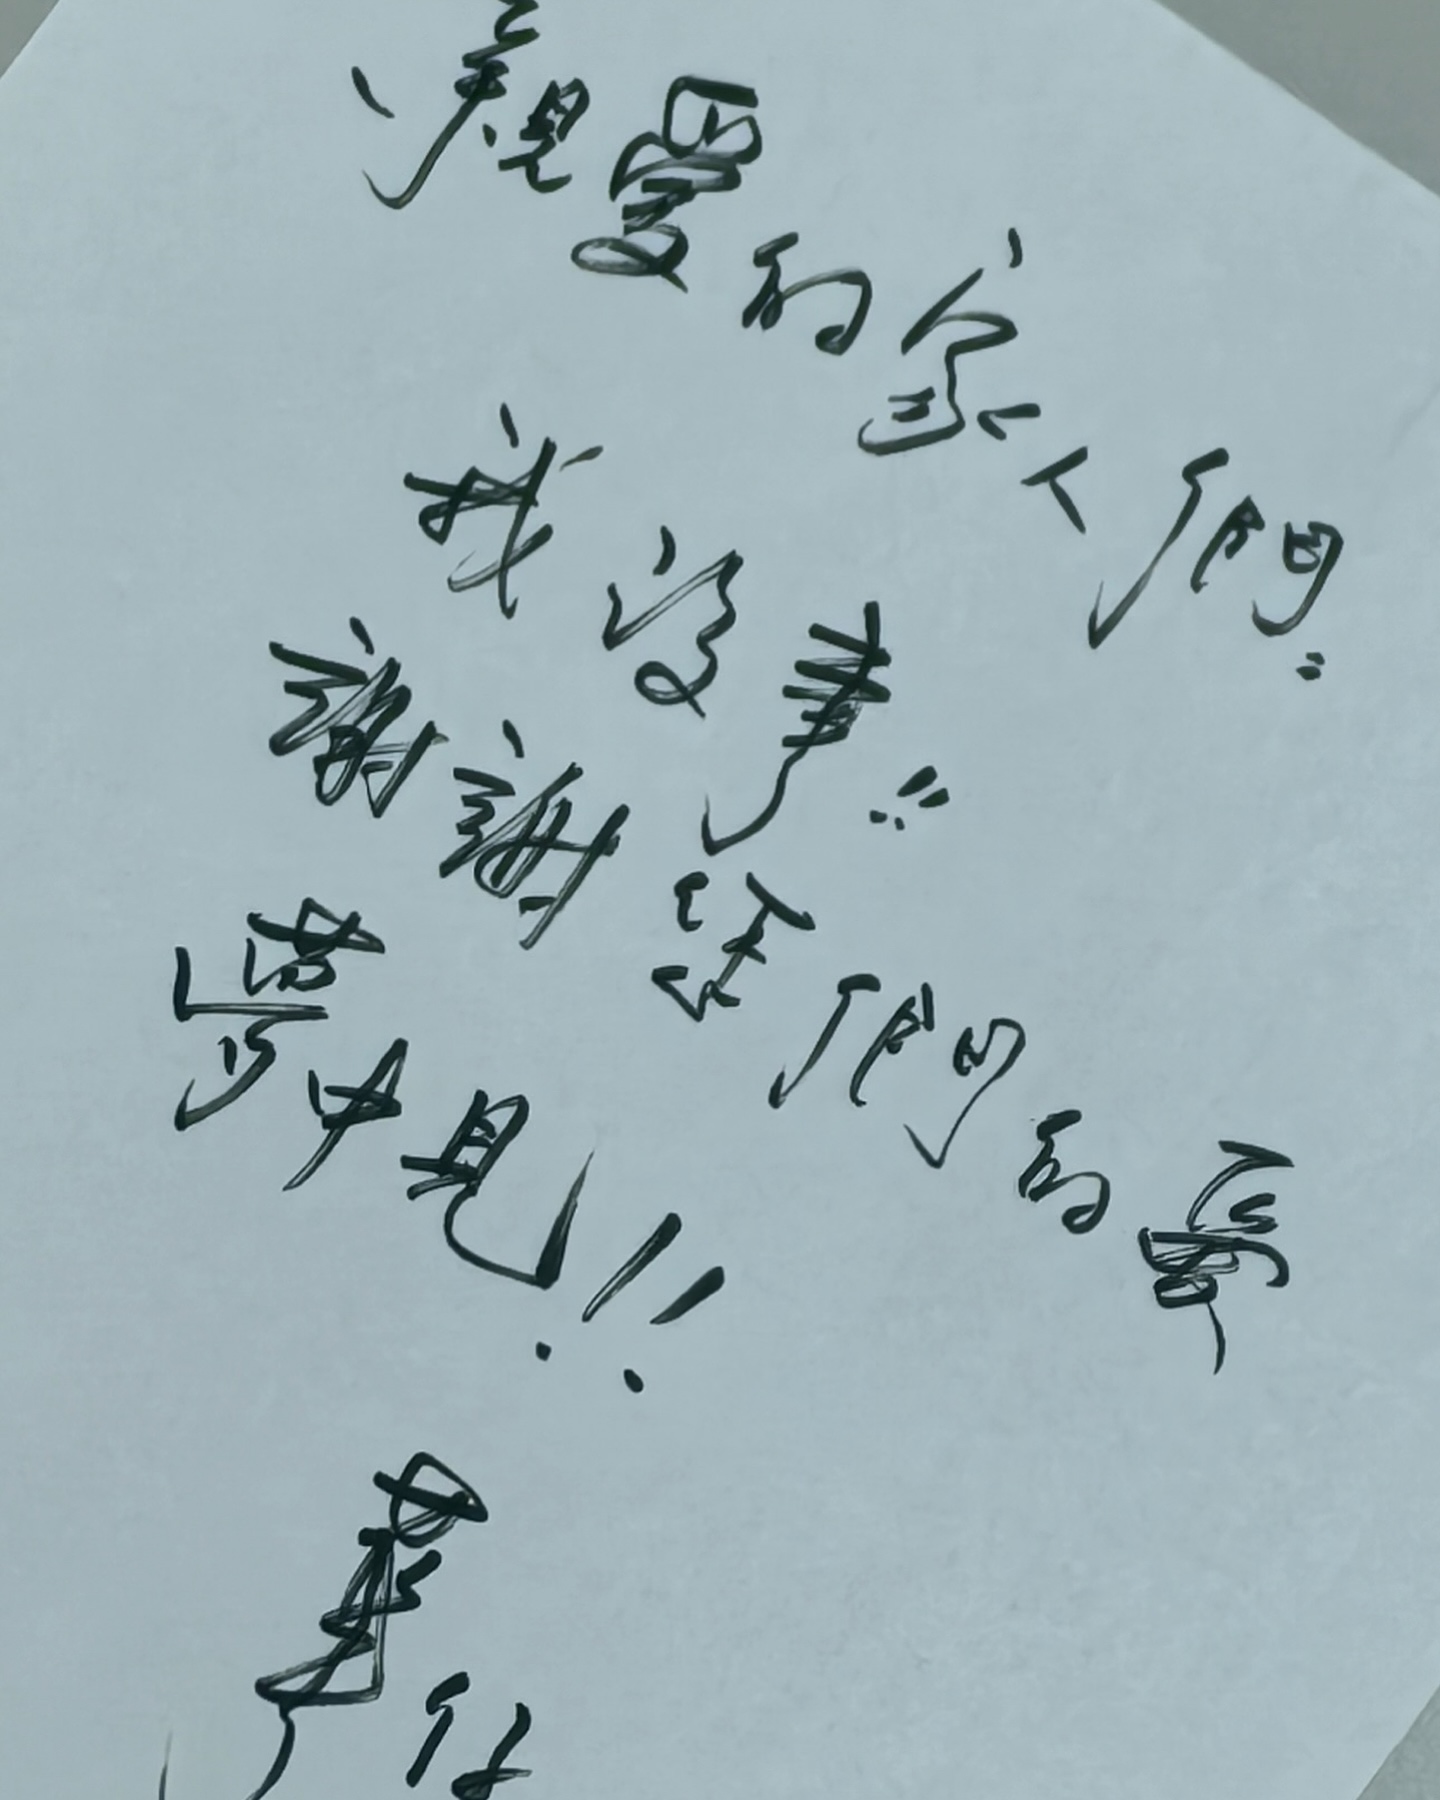 親愛的家人們：
我沒事!!
謝謝你們的愛
夢中見!!